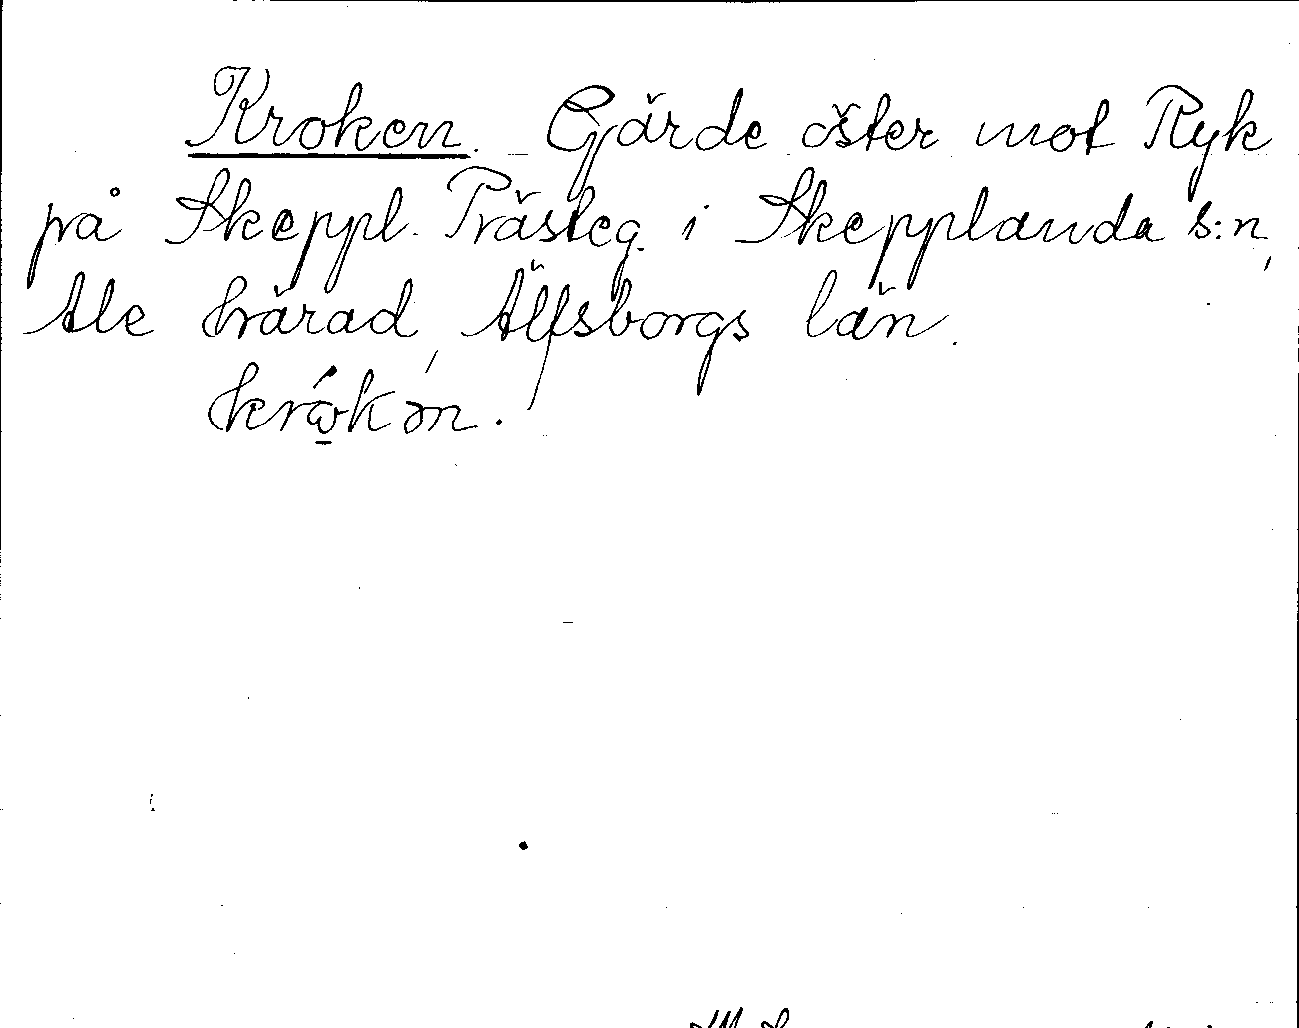 Kroken. Gärde öster mot Ryk
på Skeppl. Prästeg. i Skepplanda s:n,
Ale härad, Älfsborgs län.
krώ̲kən.